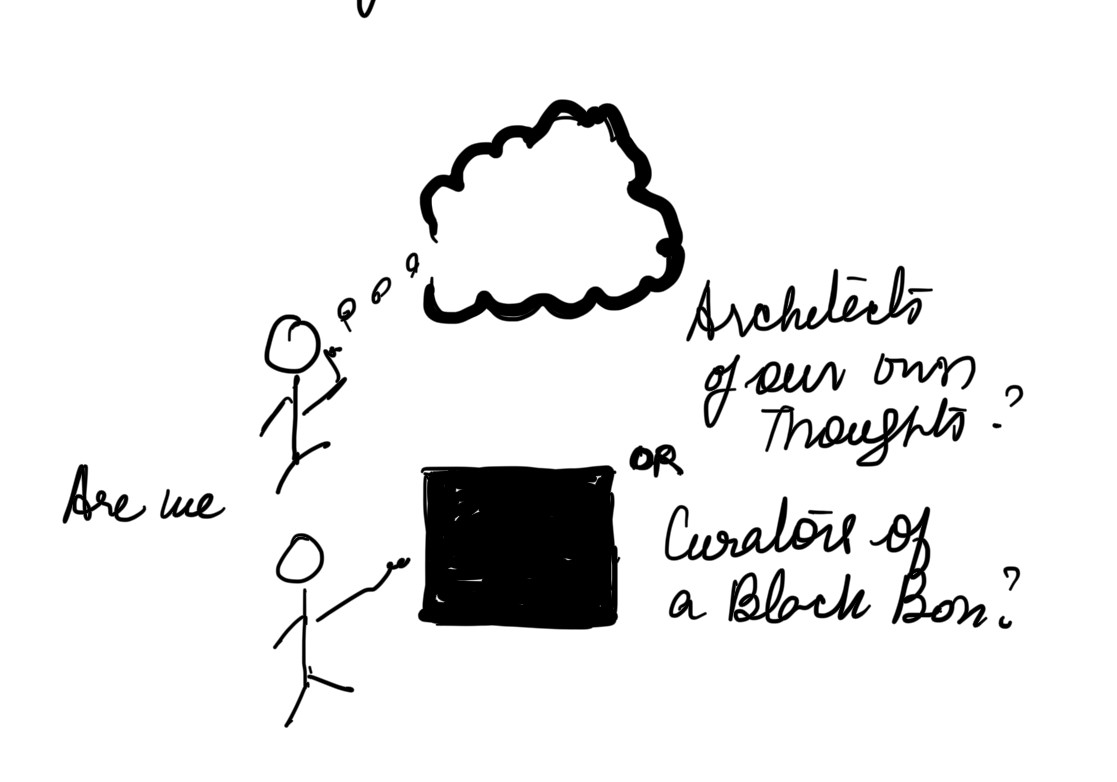 Are we
Architects
of our own
Thoughts?
OR
Curators of
a Black Box?